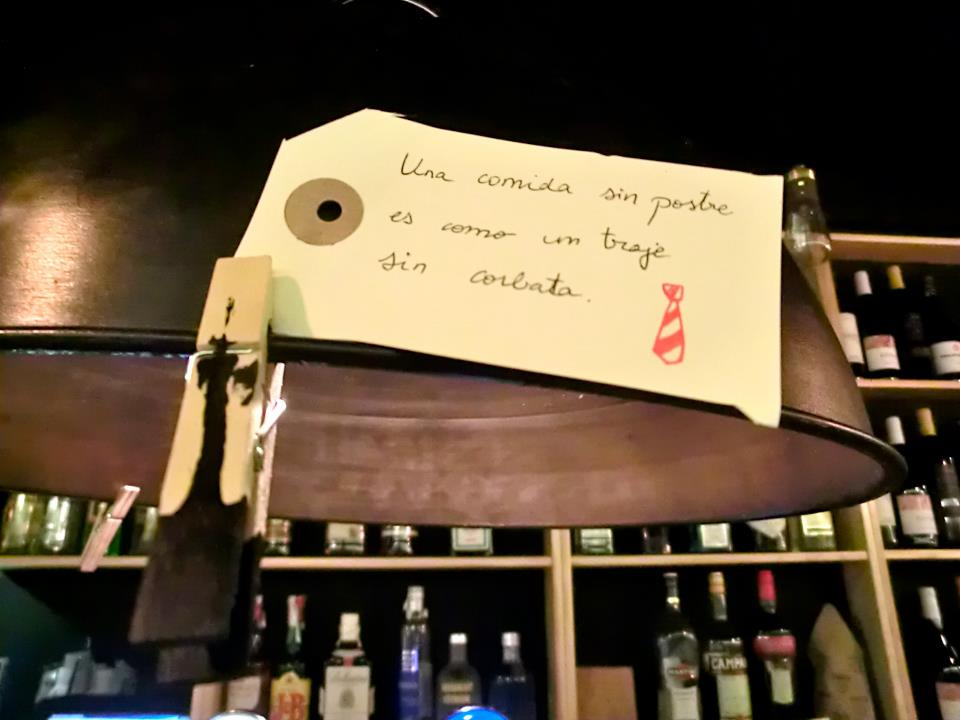 Una comida sin postre
es como un traje
sin corbata.
J&B
CAMPA